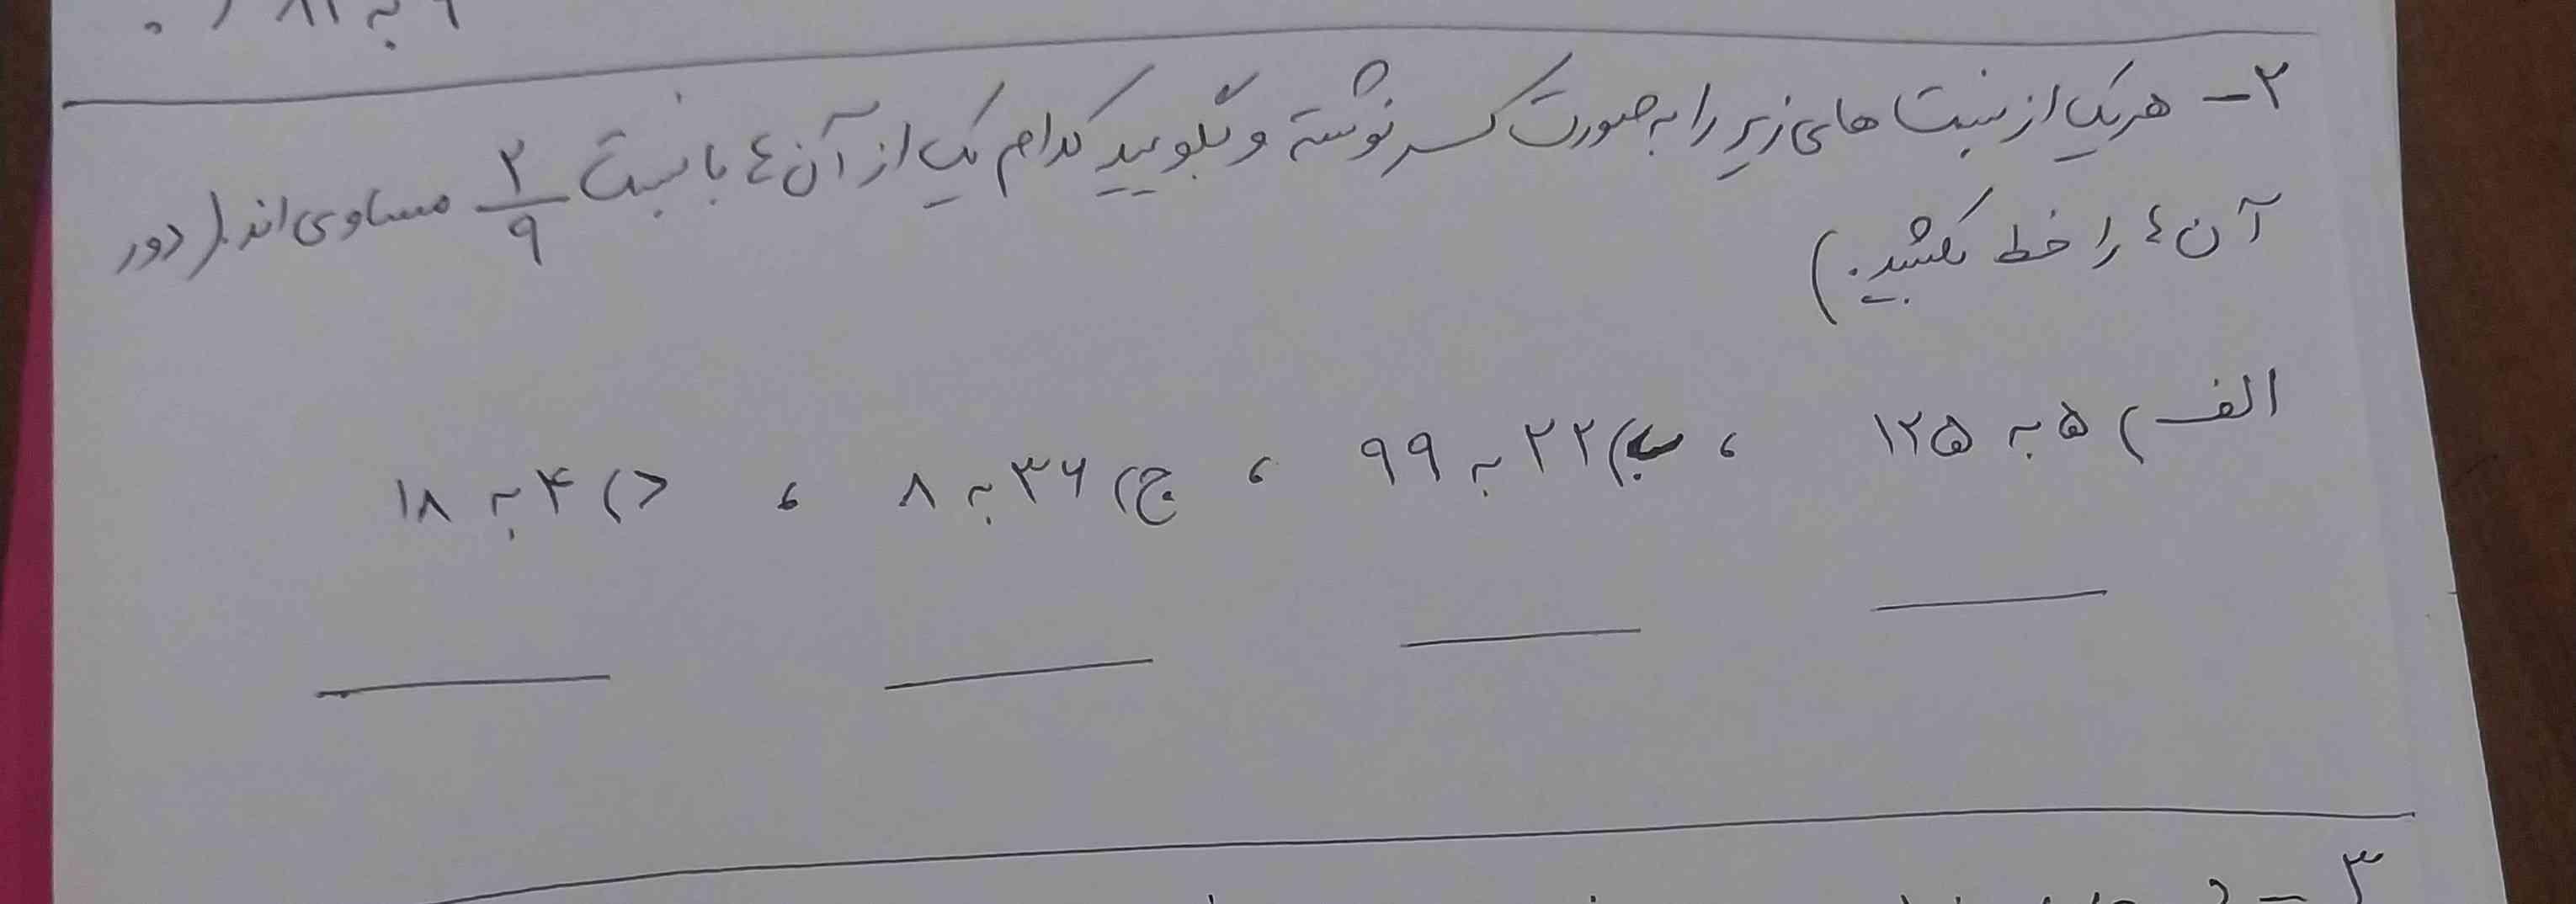 ۶ به ۸۱
۲- هریک از نسبت های زیر را به صورت کسر نوشته و بگویید کدام یک از آن ها با نسبت ۲/۹ مساوی اند. (دور
آن ها را خط بکشید.)
الف) ۵ به ۱۲۵ ، ب) ۲۲ به ۹۹ ، ج) ۳۶ به ۸ ، د) ۴ به ۱۸
۳-